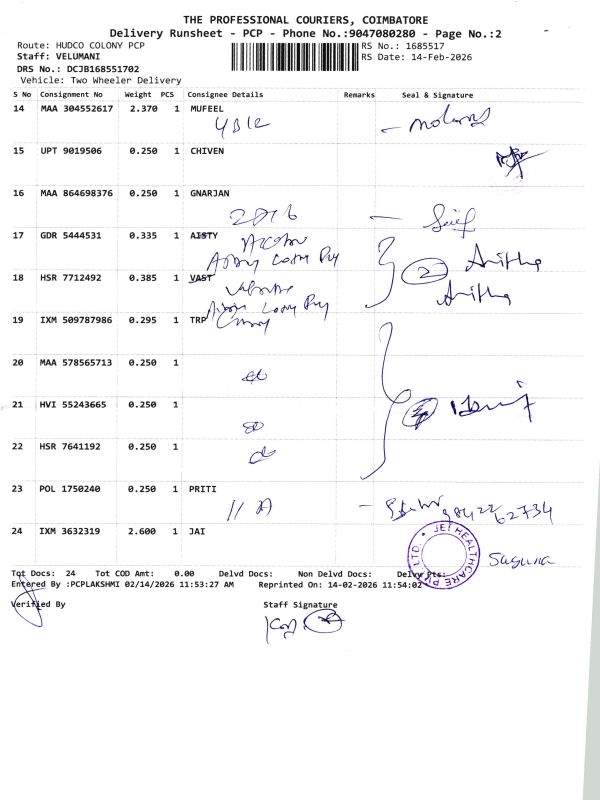 THE PROFESSIONAL COURIERS, COIMBATORE
Delivery Runsheet - PCP - Phone No.:9047080280 - Page No.:2
Route: HUDCO COLONY PCP
RS No.: 1685517
Staff: VELUMANI
RS Date: 14-Feb-2026
DRS No.: DCJB168551702
Vehicle: Two Wheeler Delivery
S No Consignment No Weight PCS Consignee Details Remarks Seal & Signature
14 MAA 304552617 2.370 1 MUFEEL
15 UPT 9019506 0.250 1 CHIVEN
16 MAA 864698376 0.250 1 GNARJAN
17 GDR 5444531 0.335 1 AISTY
2 Anitha
18 HSR 7712492 0.385 1 VAST
Anitha
19 IXM 509787986 0.295 1 TRP
20 MAA 578565713 0.250 1
21 HVI 55243665 0.250 1
22 HSR 7641192 0.250 1
23 POL 1750240 0.250 1 PRITI
11 A
98422 62734
24 IXM 3632319 2.600 1 JAI
JEI HEALTHCARE PVT. LTD.
Suguna
Tot Docs: 24 Tot COD Amt: 0.00 Delvd Docs: Non Delvd Docs: Delvy Pts:
Entered By :PCPLAKSHMI 02/14/2026 11:53:27 AM Reprinted On: 14-02-2026 11:54:02
Verified By Staff Signature